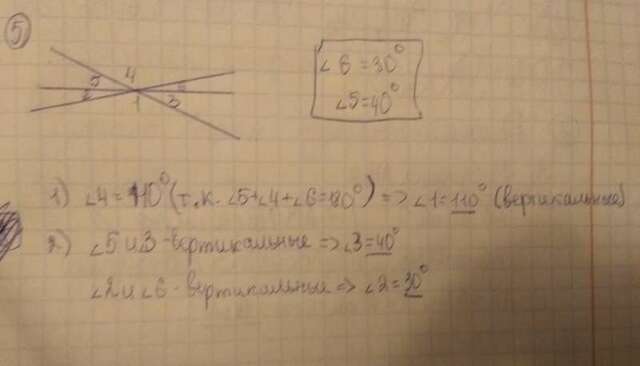 5
∠6 = 30°
∠5 = 40°
5 4
2 1 3
1) ∠4 = 110° (т.к. ∠5+∠4+∠6=180°) => ∠1 = 110° (вертикальные)
2) ∠5 и 3 - вертикальные => ∠3 = 40°
∠2 и ∠6 - вертикальные => ∠2 = 30°